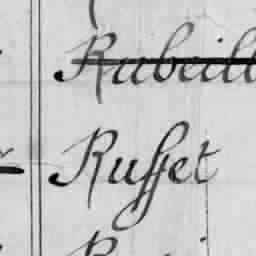 Rubeill
Rufset